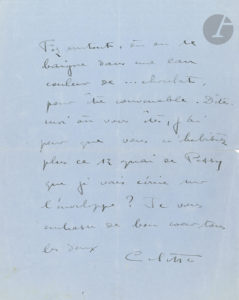 surtout, où on se
baigne dans une eau
couleur de chocolat,
pour être convenable. Dites
moi où vous êtes, j'ai
peur que vous n'habitiez
plus ce 17 quai de Passy
que je vous écris sur
l'enveloppe ? Je vous
embrasse de bon cœur tous
les deux
Colette